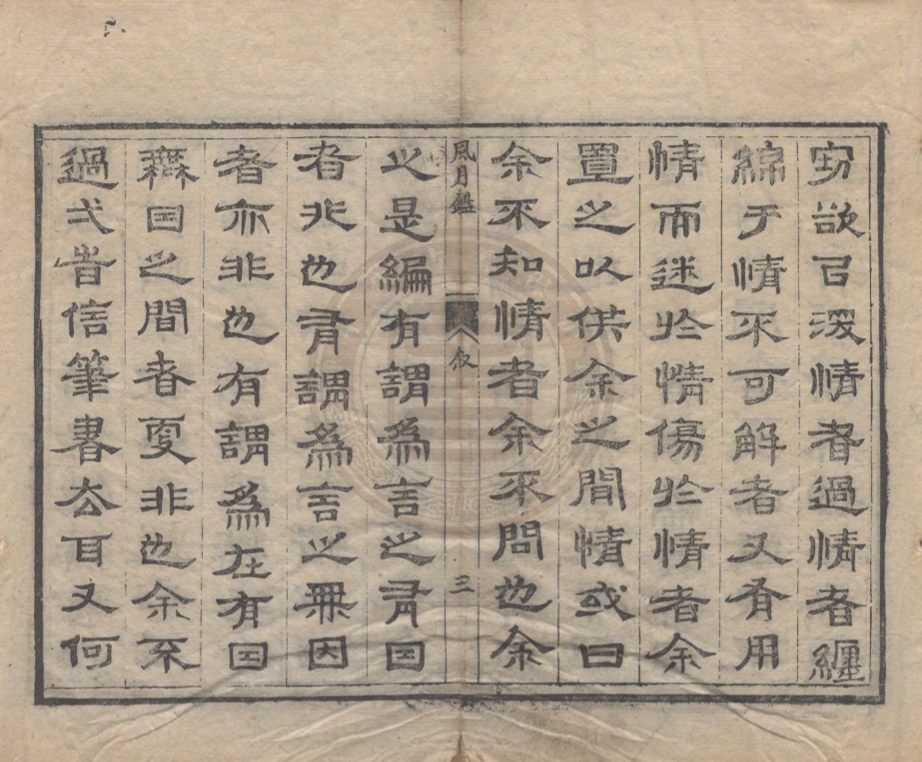 欲深情者過情者纏
綿于情不可解者又有用
情而迷於情傷於情者余
置之以供余之閒情或曰
余不知情者余不問也余
風月鑑 叙 三
之是編有謂為言之有因
者非也有謂為言之無因
者亦非也有謂為在有因
無因之間者更非也余不
過弌旹信筆書去耳又何